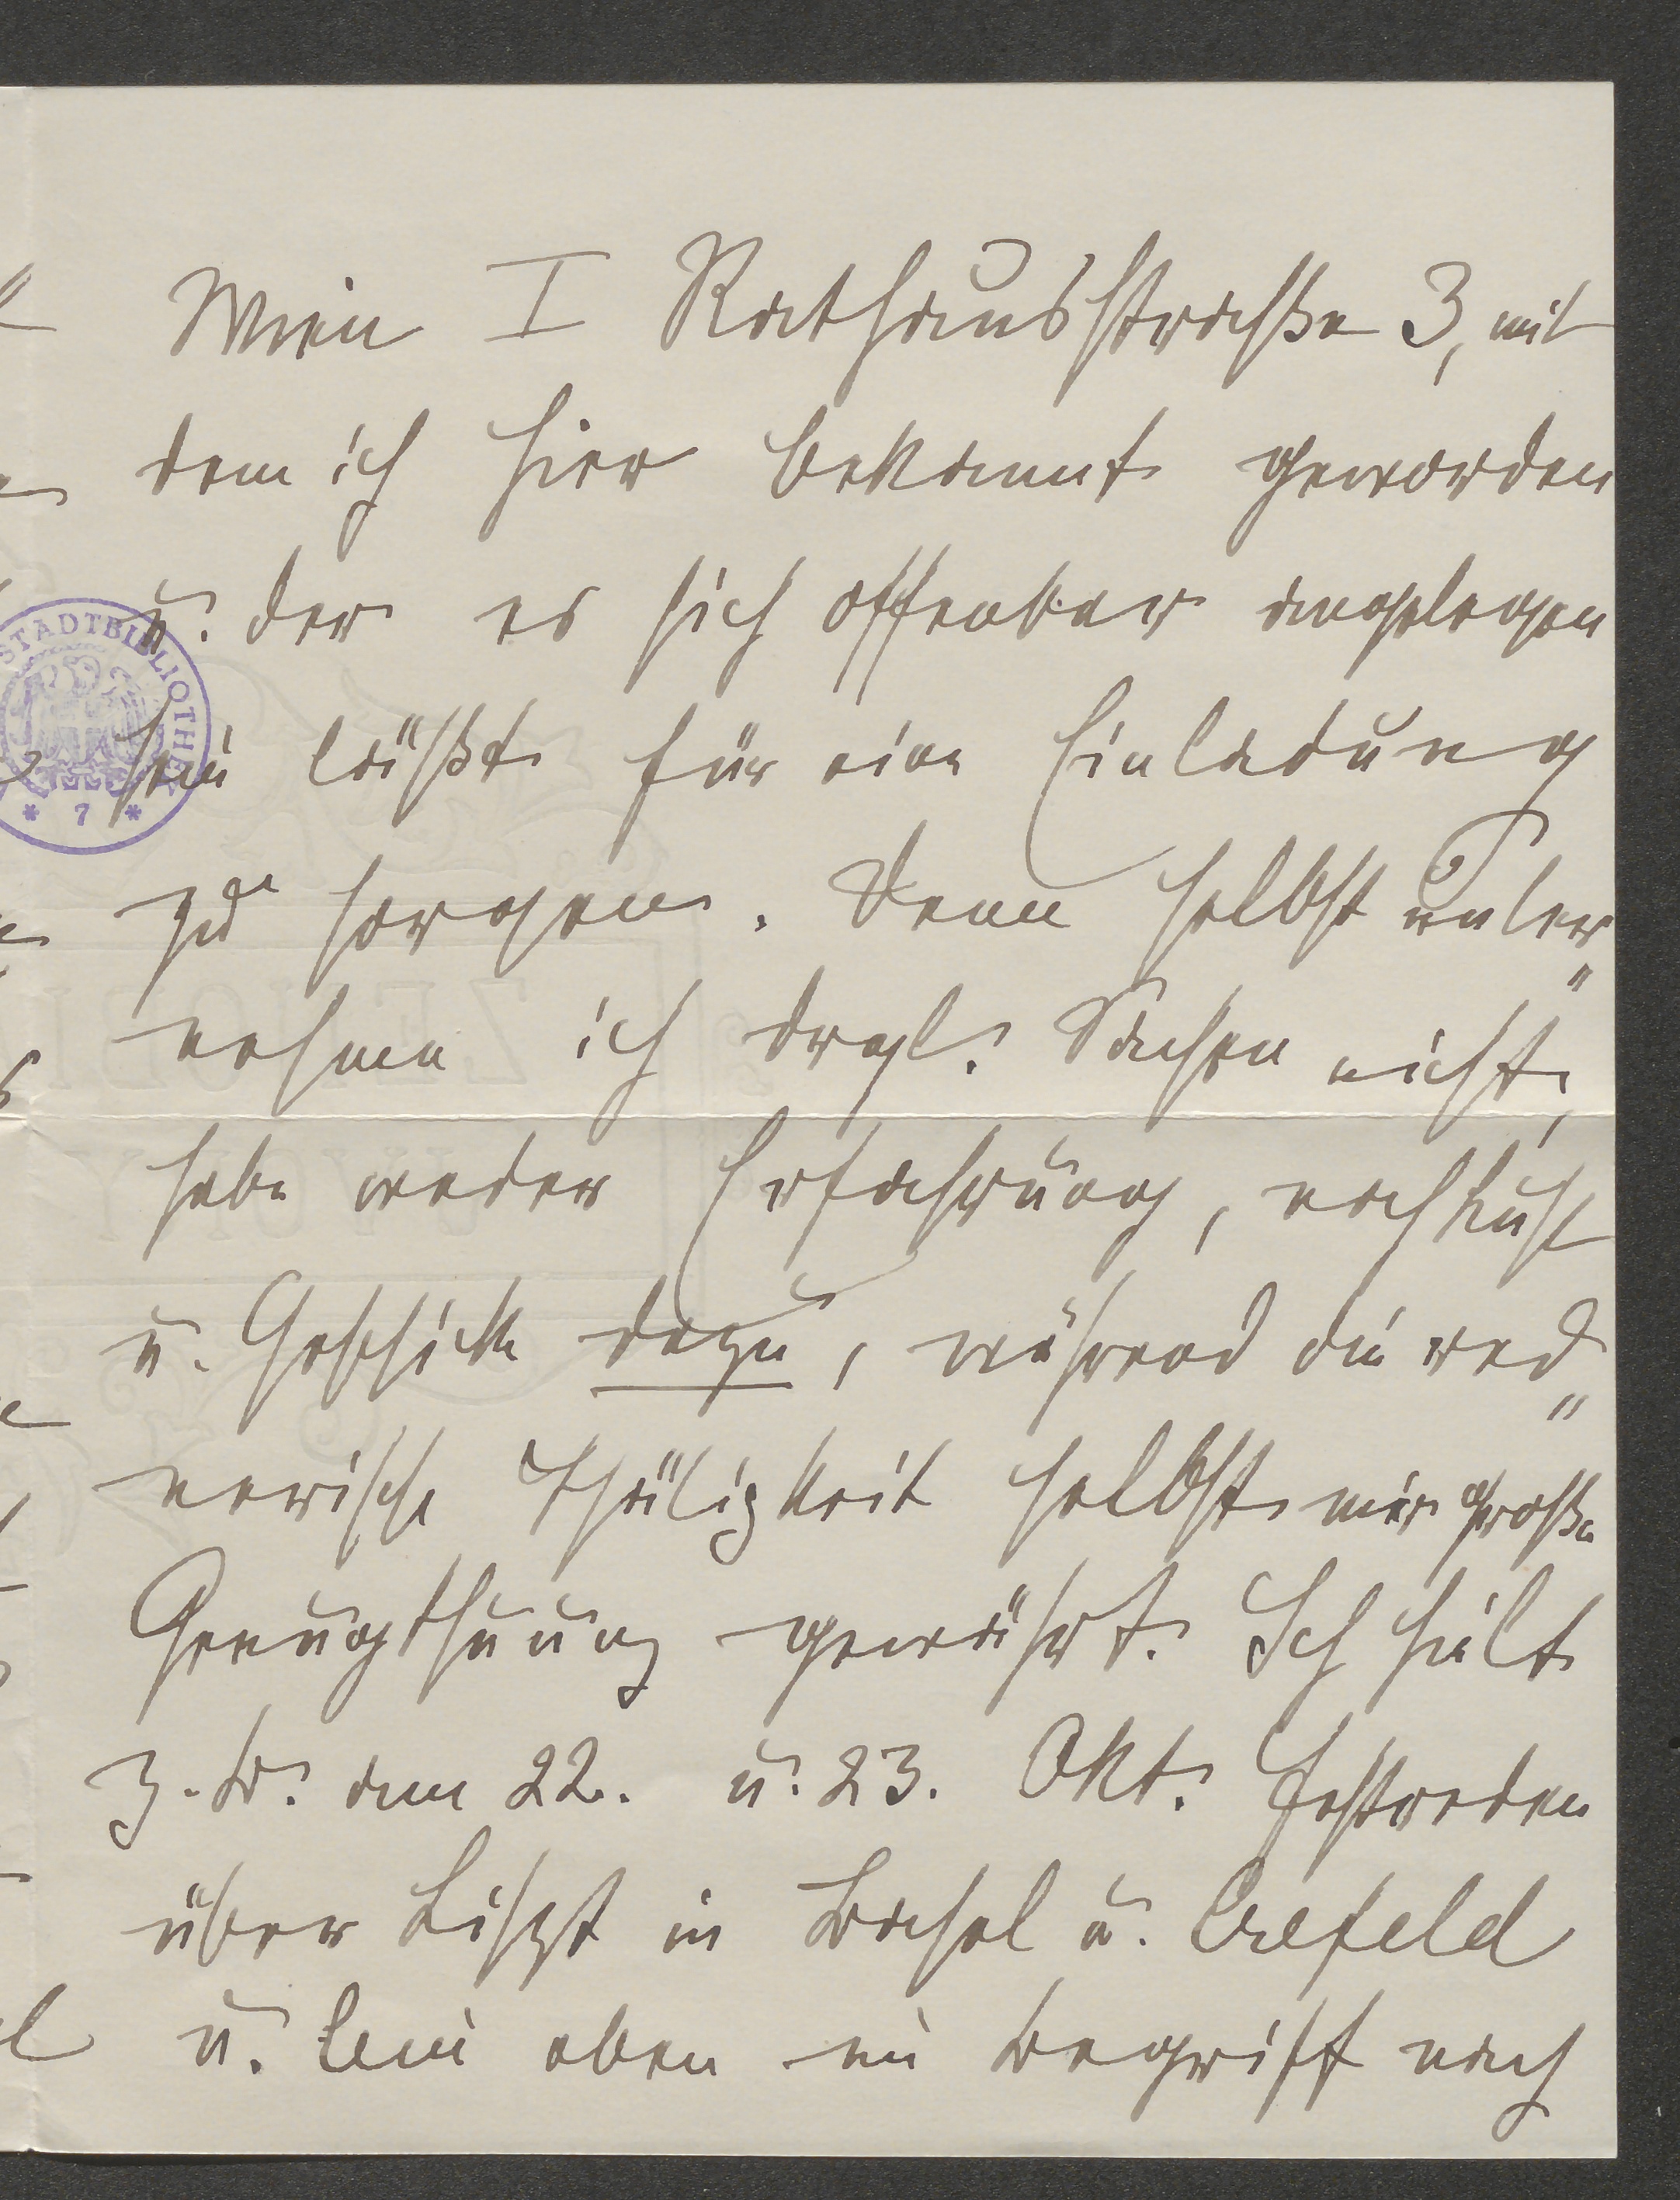 Wien I Rathausstraße 3, mit
dem ich hier bekannt geworden
u. der es sich offenbar angelegen
sein läßt für eine Einladung
zu sorgen. Denn selbst unter"
nehme ich drgl. Sachen nicht,
habe weder Erfahrung, noch Lust
u. Geschick dazu, während die red"
nerische Thätigkeit selbst mir große
Genugthuung gewährt. Ich hielt
z. B. am 22. u. 23. Okt. Festreden
über Liszt in Basel u. Crefeld
u. bin eben im Begriff nach
STADTBIBLIOTHEK
* 7 *